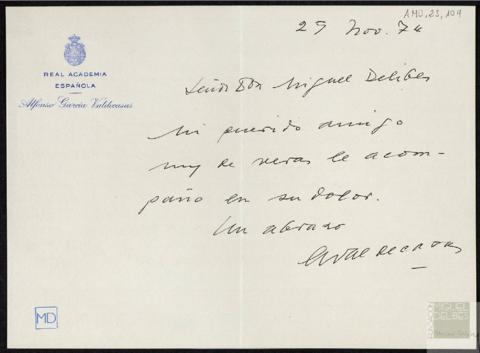 AMD, 23, 104
29 Nov. 74
REAL ACADEMIA
ESPAÑOLA
Alfonso García Valdecasas
Señor Don Miguel Delibes
Mi querido amigo
muy de veras le acom-
paño en su dolor.
Un abrazo
GValdecasas
MD
MIGUEL
DELIBES